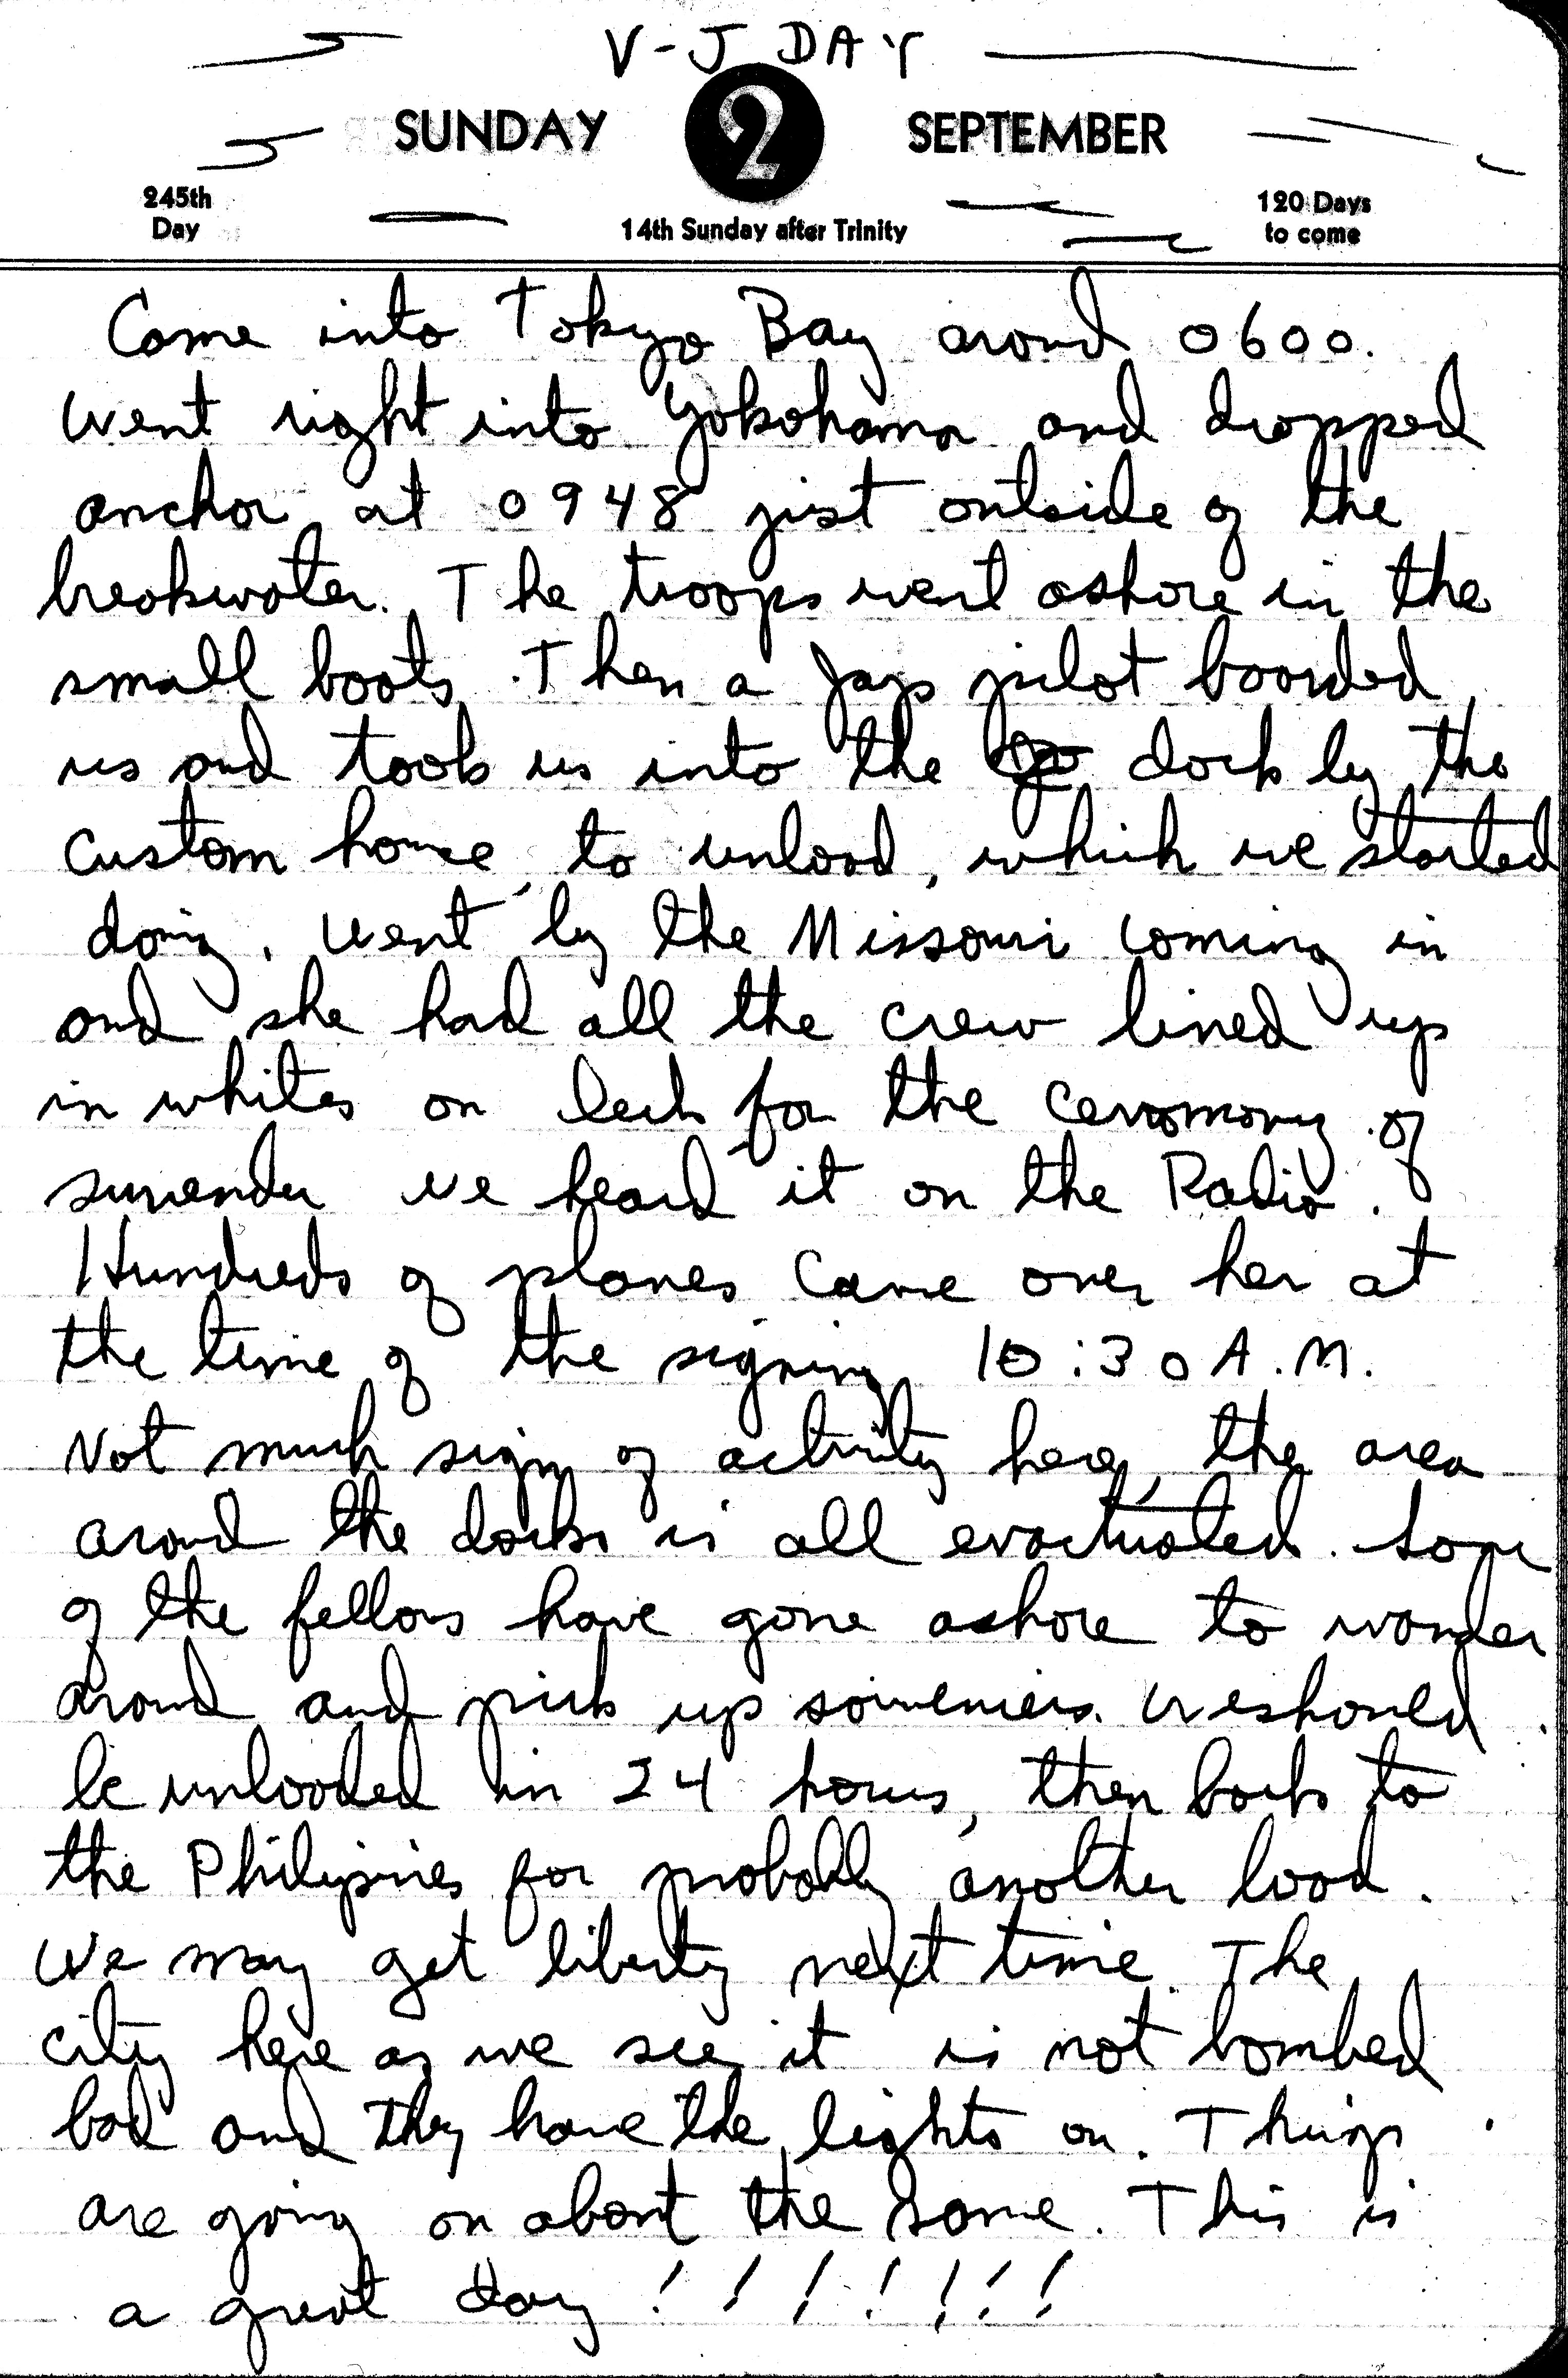 V-J DAY
SUNDAY 2 SEPTEMBER
245th Day
14th Sunday after Trinity
120 Days to come
Come into Tokyo Bay around 0600.
Went right into Yokohama and dropped
anchor at 0948 just outside of the
breakwater. The troops went ashore in the
small boats. Then a Jap pilot boarded
us and took us into the dock by the
custom house, to unload, which we started
doing. Went by the Missouri coming in
and she had all the crew lined up
in whites on deck for the ceromony of
surrender we heard it on the Radio.
Hundreds of planes came over her at
the time of the signing 10:30 A.M.
Not much sign of activity here, the area
around the docks is all evactuated. Some
of the fellows have gone ashore to wander
around and pick up souveniers. We should
be unloaded in 24 hours, then back to
the Philipines for probably another load.
We may get liberty next time. The
city here as we see it is not bombed
bad and they have the lights on. Things
are going on about the same. This is
a great day !!!!!!!